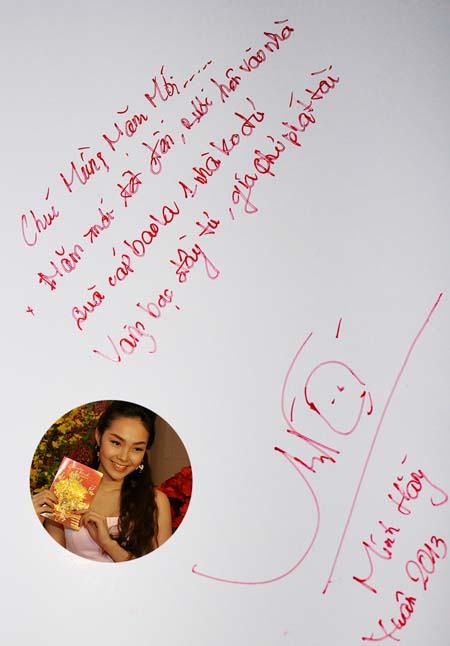 Chúc Mừng Năm Mới.....
+ Năm mới tết đến, rước hên vào nhà
Quà cáp bao la 1 nhà ko đủ
Vàng bạc đầy tủ, gia phú phát tài
Minh Hằng
Xuân 2013